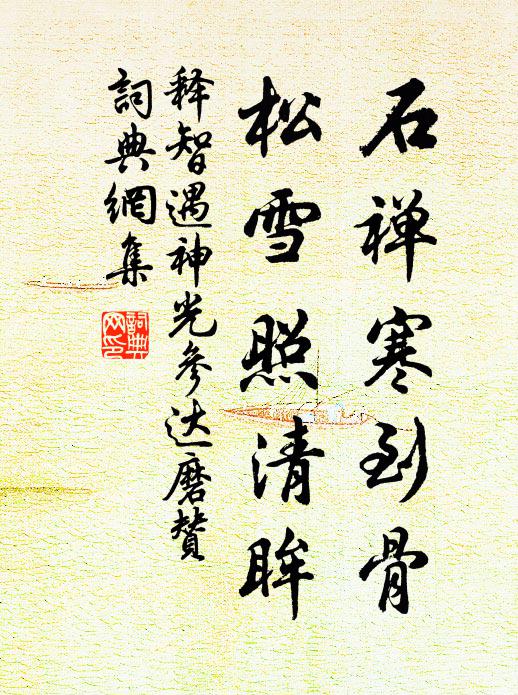 石禅寒到骨
松雪照清眸
释智遇神光参达磨赞
詞典網集
詞典网印